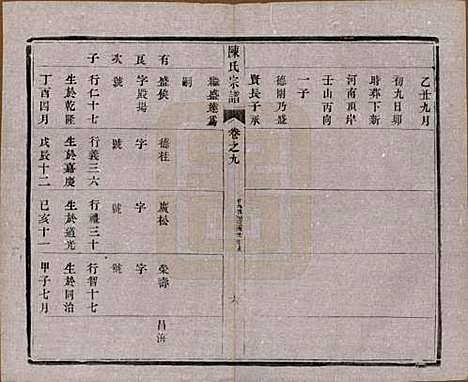 乙丑九月
初九日卯
時葬下新
河南頂岸
壬山丙向
一子
德剛乃盛
賢長子承
繼盛達為
嗣
陳氏宗譜
卷之九
有 盛俟 德柱 廣松 榮壽 昌海
長 字殿揚 字 字 字
次 號 號 號 號
子 行仁十七 行義三六 行禮三十 行智十七
生於乾隆 生於嘉慶 生於道光 生於同治
丁酉四月 戊辰十二 己亥十一 甲子七月